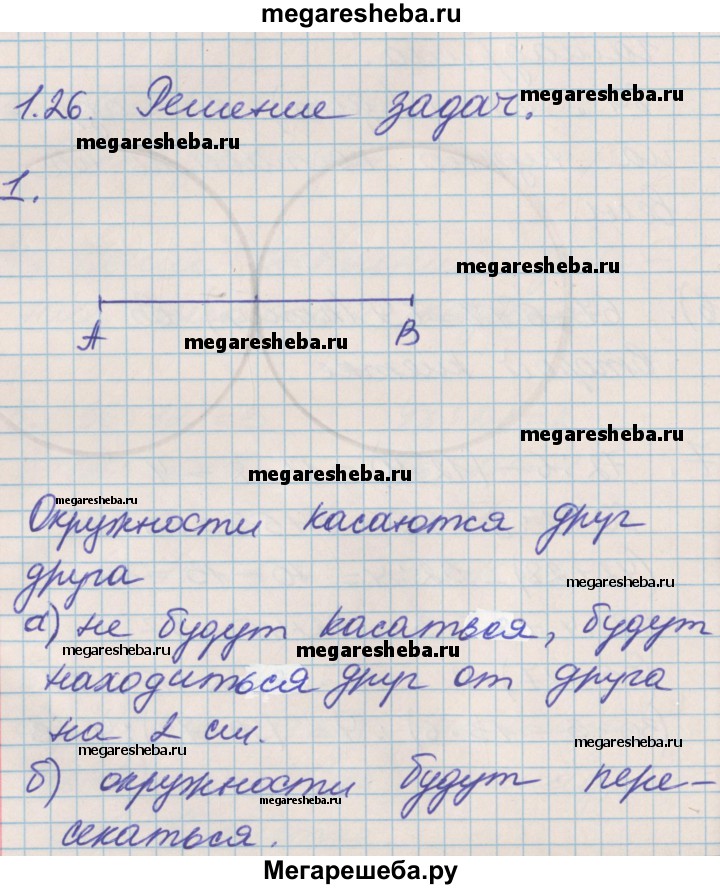 megaresheba.ru
1.26. Решение задач.
megaresheba.ru
megaresheba.ru
1.
megaresheba.ru
A B
megaresheba.ru
megaresheba.ru
megaresheba.ru
megaresheba.ru
Окружности касаются друг
друга
megaresheba.ru
а) не будут касаться, будут
megaresheba.ru
megaresheba.ru
находиться друг от друга
на 2 см.
megaresheba.ru
megaresheba.ru
б) окружности будут пере-
megaresheba.ru
секаться.
Мегарешеба.ру